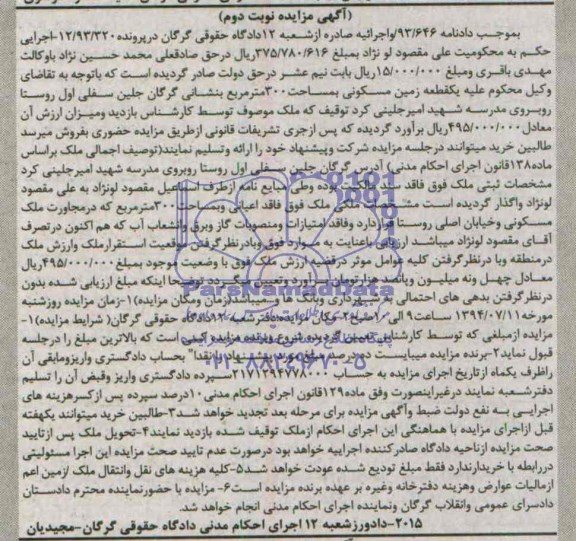 (آگهی مزایده نوبت دوم)
بموجب دادنامه ۹۳/۶۴۶واجرائیه صادره ازشعبه ۱۲دادگاه حقوقی گرگان درپرونده۱۲/۹۳/۳۲۰-اجرایی
حکم به محکومیت علی مقصود لو نژاد بمبلغ ۳۷۵/۷۸۰/۶۱۶ریال درحق صادقعلی محمد حسین نژاد باوکالت
مهدی باقری ومبلغ ۱۵/۰۰۰/۰۰۰ریال بابت نیم عشر درحق دولت صادر گردیده است که باتوجه به تقاضای
وکیل محکوم علیه یکقطعه زمین مسکونی بمساحت۳۰۰مترمربع بنشانی گرگان جلین سفلی اول روستا
روبروی مدرسه شهید امیرجلینی کرد توقیف که ملک موصوف توسط کارشناس بازدید ومیزان ارزش آن
معادل۴۹۵/۰۰۰/۰۰۰ریال برآورد گردیده که پس ازجری تشریفات قانونی ازطریق مزایده حضوری بفروش میرسد
طالبین خرید میتوانند درجلسه مزایده شرکت وپیشنهاد خود را ارائه وتسلیم نمایند(توصیف اجمالی ملک براساس
ماده۱۳۸قانون اجرای احکام مدنی) آدرس گرگان جلین سفلی اول روستا روبروی مدرسه شهید امیرجلینی کرد
مشخصات ثبتی ملک فوق فاقد سند مالکیت بوده وطی مبایع نامه ازطرف اسماعیل مقصود لونژاد به علی مقصود
لونژاد واگذار گردیده است مشخصات ملک ملک فوق فاقد اعیانی وبمساحت ۳۰۰مترمربع که درمجاورت ملک
مسکونی وخیابان اصلی روستا قراردارد وفاقد امتیازات ومنصوبات گاز وبرق وانشعاب آب که هم اکنون درتصرف
آقای مقصود لونژاد میباشد ارزیابی باعنایت به موارد فوق وبادرنظرگرفتن موقعیت استقرارملک وارزش ملک
درمنطقه وبا درنظرگرفتن کلیه عوامل موثر درقضیه ارزش ملک فوق با وضعیت موجود بمبلغ۴۹۵/۰۰۰/۰۰۰ریال
معادل چهل ونه میلیون وپانصد هزارتومان برآورد وتعیین میگردد توضیحا اینکه مبلغ ارزیابی شده بدون
درنظرگرفتن بدهی های احتمالی به شهرداری وبانک ها و میباشد(زمان ومکان مزایده)۱-زمان مزایده روزشنبه
مورخه۱۳۹۴/۰۷/۱۱ ساعت۹ الی۱۰صبح۲-مکان مزایده:دفترشعبه ۱۲دادگاه حقوقی گرگان( شرایط مزایده)۱-
مزایده ازمبلغی که توسط کارشناس تعیین گردیده شروع وبرنده مزایده کسی است که بالاترین مبلغ را درجلسه
قبول نماید۲-برنده مزایده میبایست ده درصد مبلغ مورد پیشنهاد رانقدا" بحساب دادگستری واریزومابقی آن
راظرف یکماه ازتاریخ اجرای مزایده به حساب سپرده دادگستری واریز وقبض آن را تسلیم
دفترشعبه نمایند درغیراینصورت وفق ماده۱۲۹قانون اجرای احکام مدنی۱۰درصد سپرده پس ازکسرهزینه های
اجرایی به نفع دولت ضبط وآگهی مزایده برای مرحله بعد تجدید خواهد شد۳-طالبین خرید میتوانند یکهفته
قبل ازاجرای مزایده با هماهنگی این اجرای احکام ازملک توقیف شده بازدید نمایند۴-تحویل ملک پس ازتایید
صحت مزایده ازناحیه دادگاه صادرکننده اجراییه خواهد بود درصورت عدم تایید صحت مزایده این اجرا مسئولیتی
دررابطه با خریدارندارد فقط مبلغ تودیع شده عودت خواهد شد۵-کلیه هزینه های نقل وانتقال ملک ازمین اعم
ازمالیات عوارض وهزینه دفترخانه وغیره بر عهده برنده مزایده است۶- مزایده با حضورنماینده محترم دادستان
دادسرای عمومی وانقلاب گرگان ونماینده اجرای احکام مدنی انجام خواهد شد.
۲۰۱۵-دادورزشعبه ۱۲ اجرای احکام مدنی دادگاه حقوقی گرگان-مجیدیان
ParsNamadData